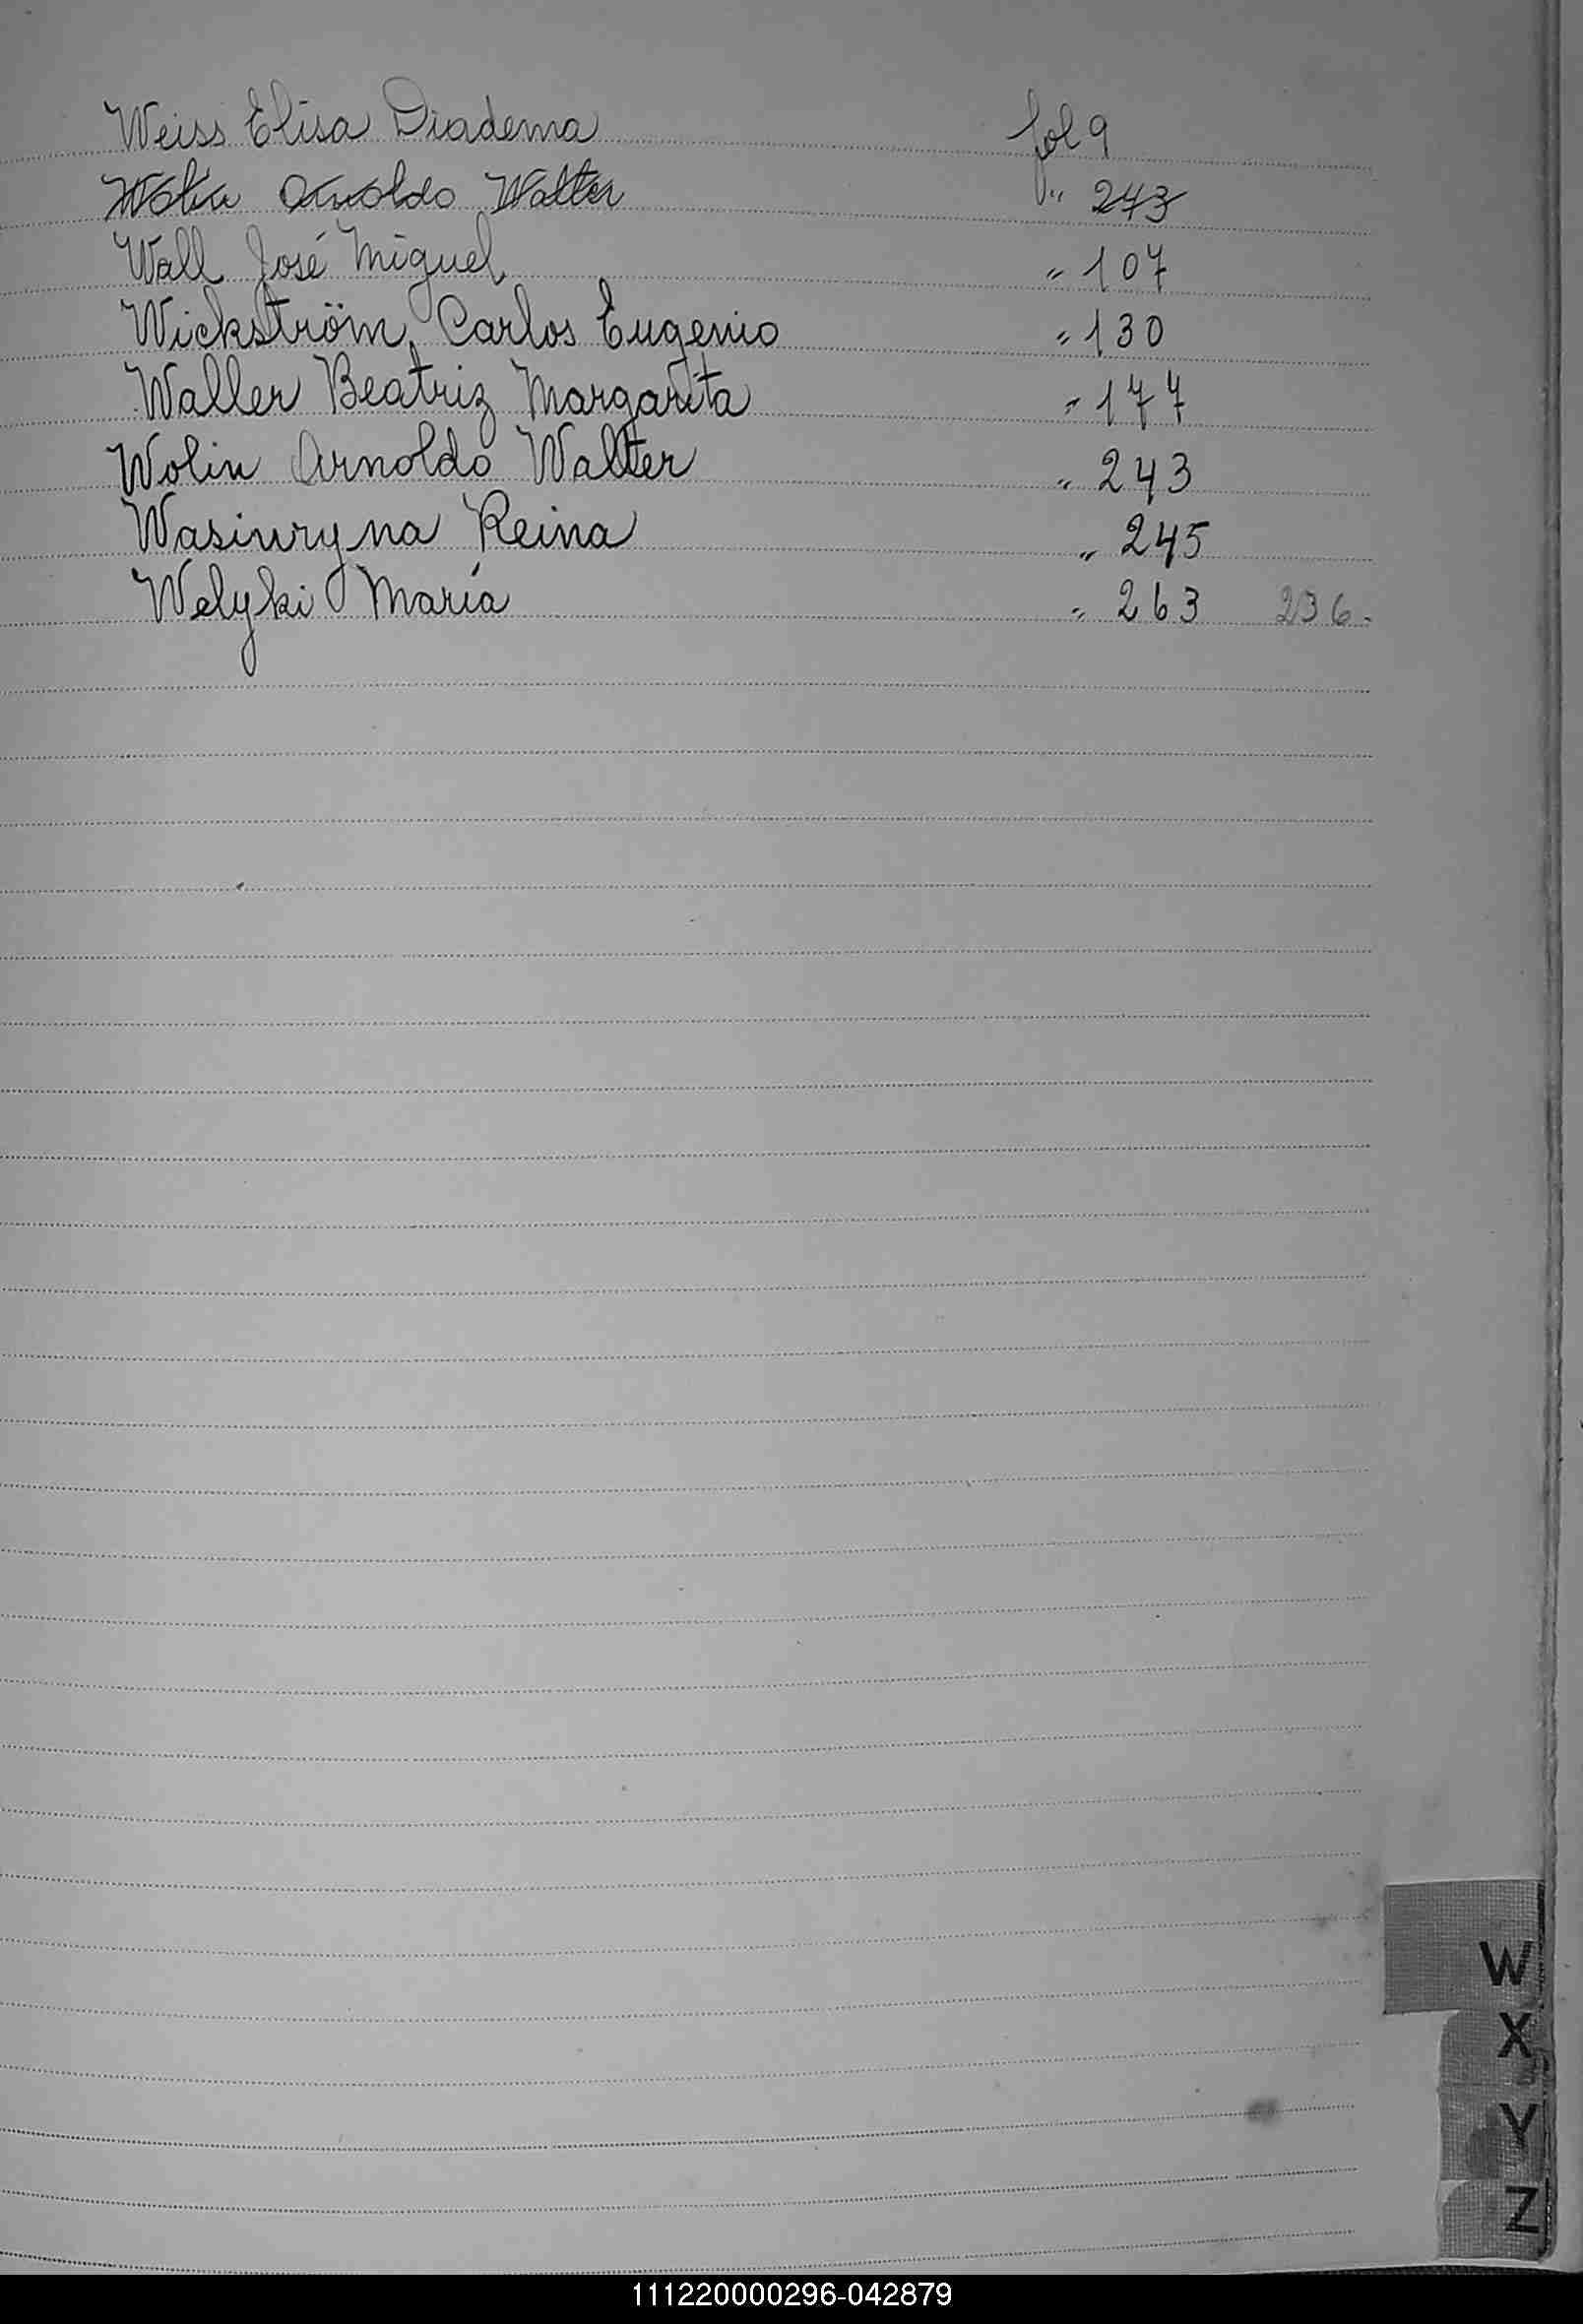 Weiss Elisa Diadema fol 9
Wolin Arnoldo Walter " 243
Wall José Miguel " 107
Wickström, Carlos Eugenio " 130
Waller Beatriz Margarita " 177
Wolin Arnoldo Walter " 243
Wasiuryna Reina " 245
Welyki María " 263 236.
W
X
Y
Z
111220000296-042879